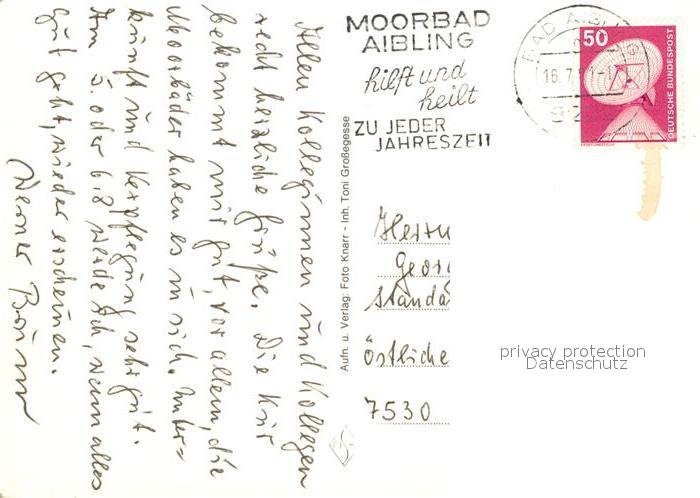 Allen Kolleginnen und Kollegen
recht herzliche Grüße. Die Kur
bekommt mir gut, vor allem, die
Moorbäder haben es in sich. Unter=
kunft und Verpflegung sehr gut.
Am 5. oder 6.8 werde ich, wenn alles
gut geht, wieder erscheinen.
Werner
Aufn. u. Verlag: Foto Knarr - Inh. Toni Großegesse
MOORBAD
AIBLING
hilft und
heilt
ZU JEDER
JAHRESZEIT
BAD AIBLI
16.7.
50
DEUTSCHE BUNDESPOST
Herrn
Geor
Standa
östliche
7530
privacy protection
Datenschutz